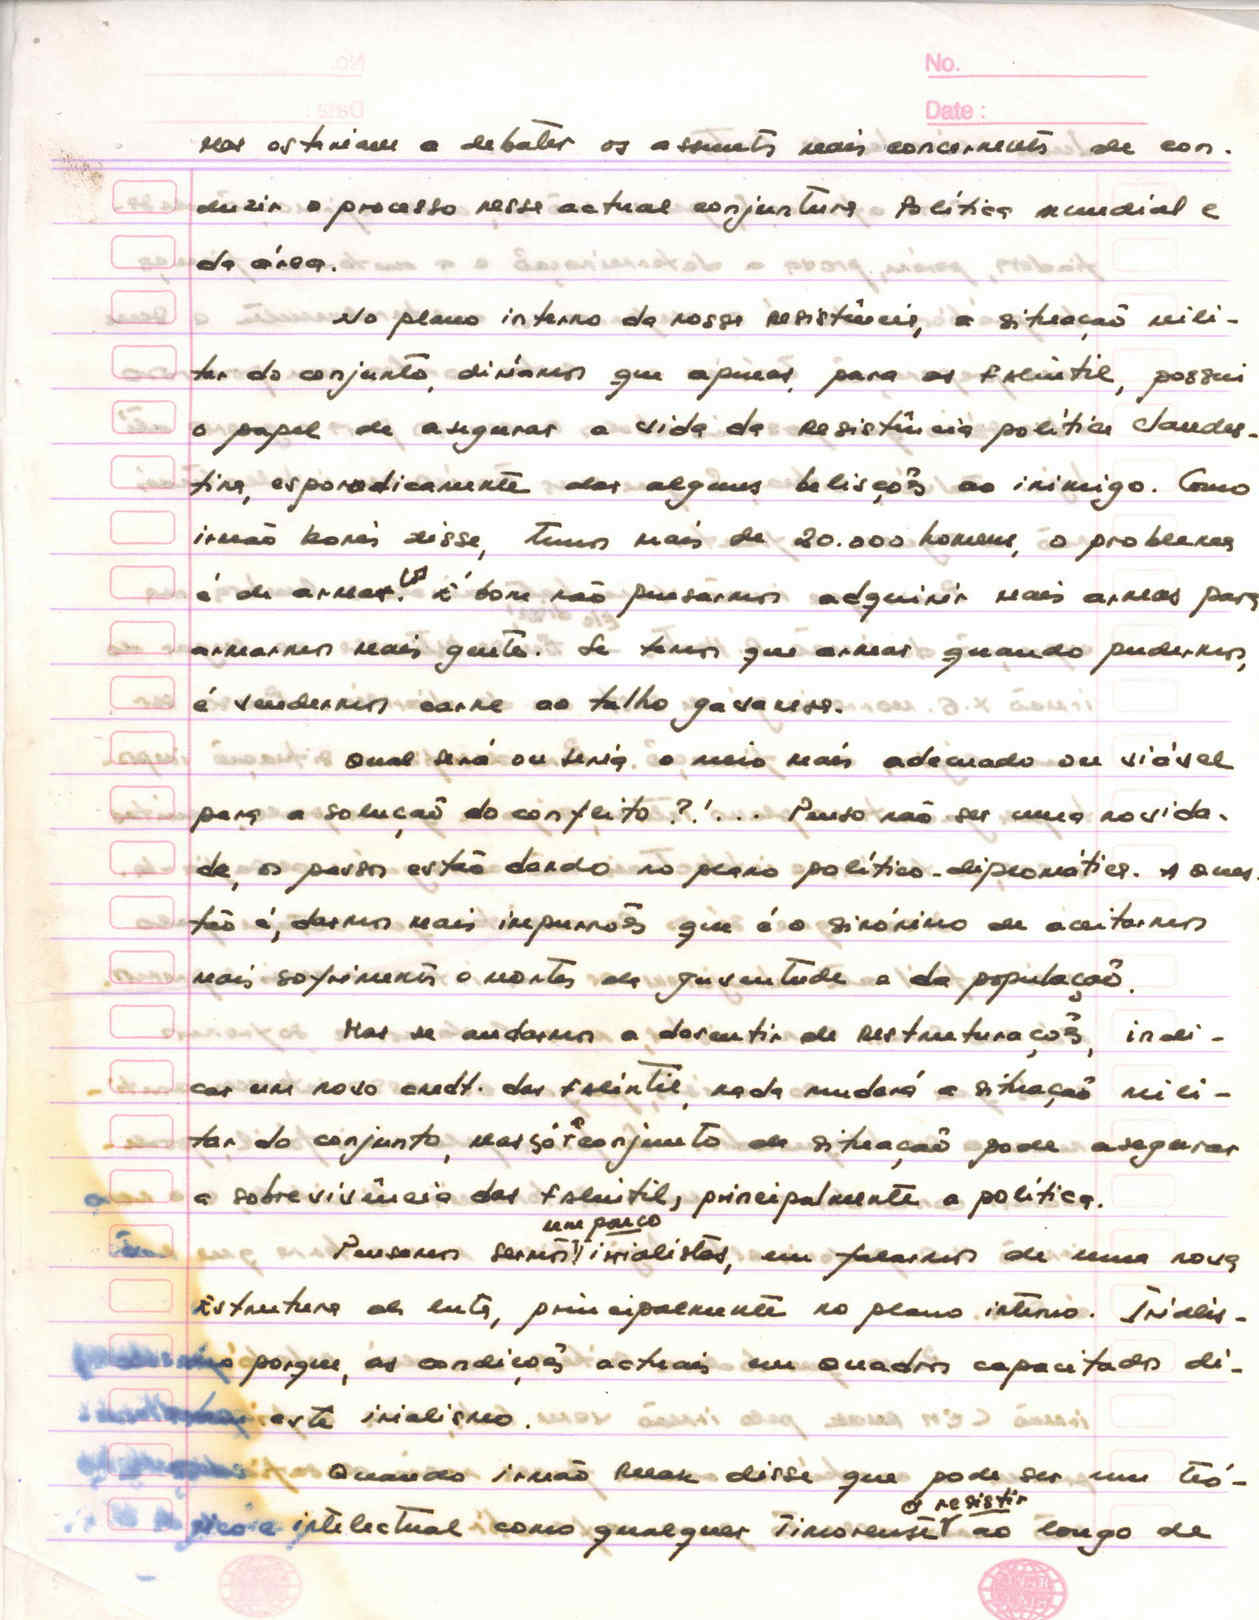 No.
Date :
a debater os assuntos mais concernentes de con-
duzir o processo nesse actual conjuntura Política mundial e
da área.
No plano interno da nossa Resistência, a situação mili-
tar do conjunto, diríamos que apenas, para as Falintil, possui
o papel de asegurar a vida da Resistência política clandes-
tina, esporadicamente dar algumas belisções ao inimigo. Como
irmão disse, temos mais de 20.000 homens, o problema
é de armas. É bom não pensarmos adquirir mais armas para
armarmos mais gente. Se temos que armar quando pudermos,
é vendermos carne ao talho javanesa.
Qual será ou seria o meio mais adequado ou viável
para a solução do conflito?!... Penso não ser uma novida-
de, os passos estão dando no plano político-diplomática. A Ques-
tão é, darmos mais empurrões que é o sinónimo de aceitarmos
mais sofrimentos e mortes da juventude e da população.
Mas se andarmos a descutir de Restruturações, indi-
car um novo cmdt. das Falintil, nada mudará a situação mili-
tar do conjunto, mas só o conjunto da situação pode asegurar
a sobrevivência das Falintil, principalmente a política.
Pensamos sermos um pouco irialistas, em falarmos de uma nova
Estrutura de luta, principalmente no plano interno. Irialis-
porque, as condições actuais em Quadros capacitados di-
este irialismo.
Quando irmão Ruak disse que pode ser um teó-
rico e intelectual como qualquer Timorense o resistir ao longo de